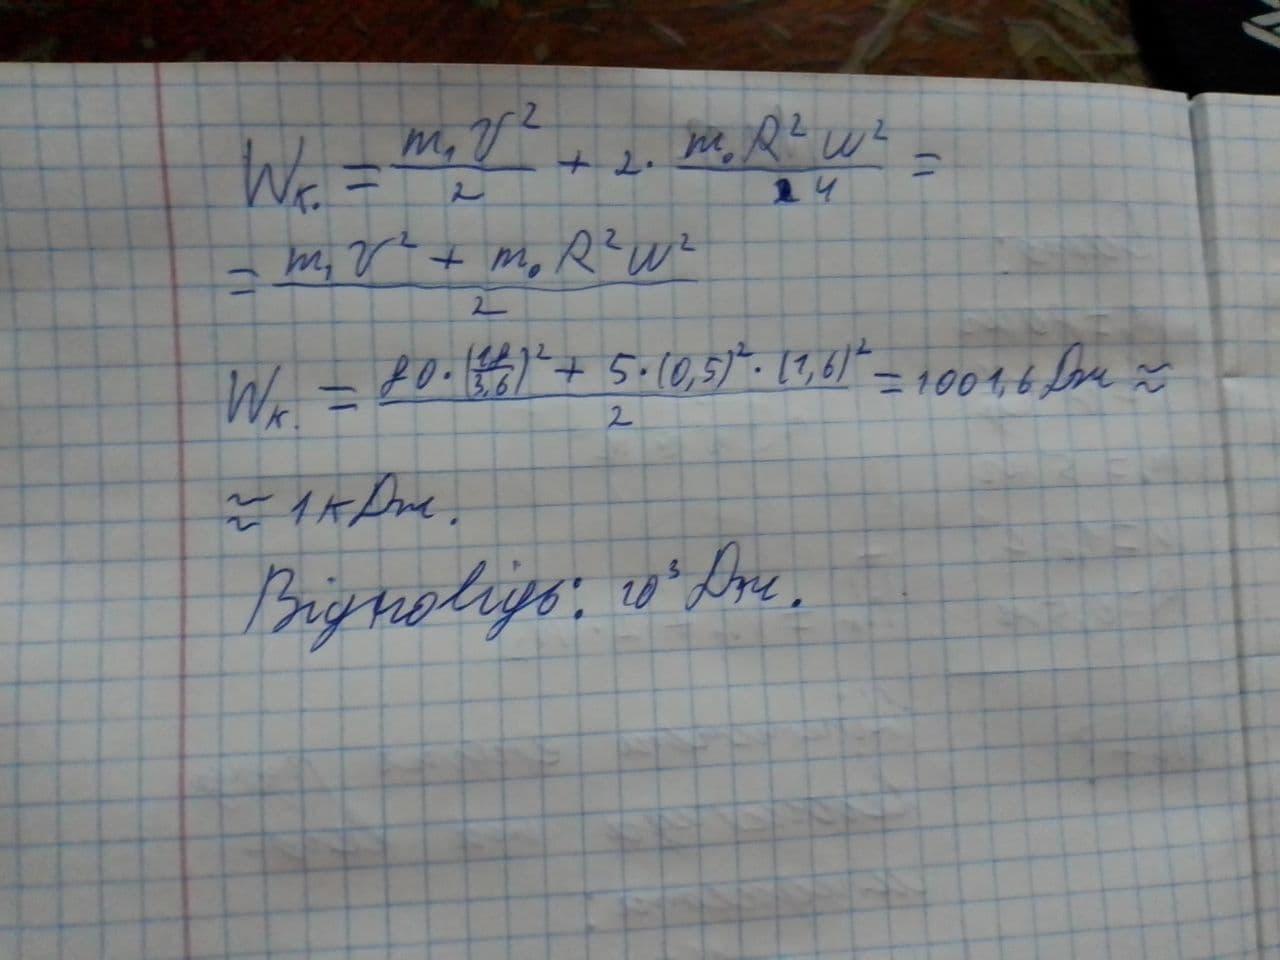 Wк. = m₁v²/2 + 2 · m₀R²w²/4 =
= m₁v² + m₀R²w²/2
Wк. = 80·(18/3,6)² + 5·(0,5)²·(1,6)²/2 = 1001,6 Дж ≈
≈ 1 кДж.
Відповідь: 10³ Дж.